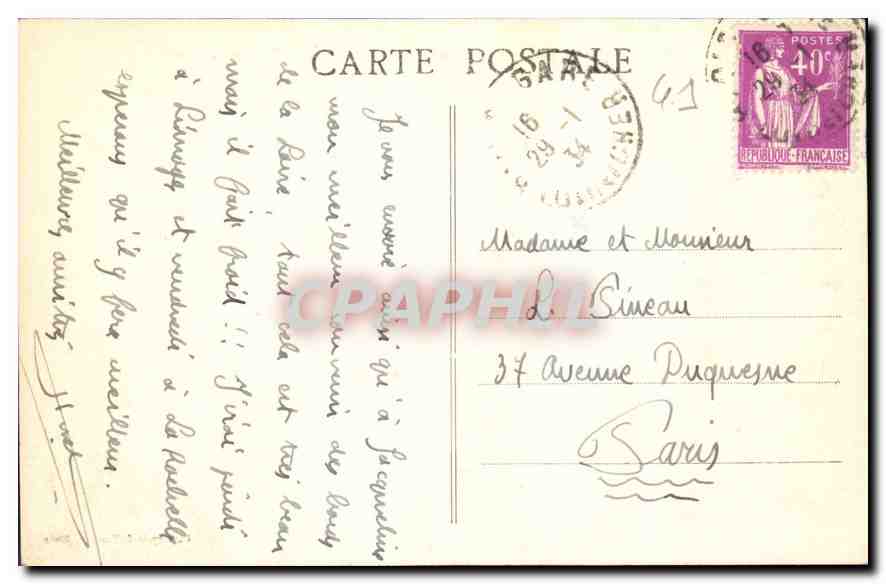 CARTE POSTALE
GARE
16
29 -1
34
41
POSTES
40c
REPUBLIQUE-FRANÇAISE
16
29
Madame et Monsieur
L. Sineau
37 Avenue Duquesne
Paris
Je vous envoie ainsi qu'à Jacqueline
mon meilleur souvenir des bords
de la Loire, tout cela est très beau
mais il fait froid!! J'irai jeudi
à Limoges et vendredi à La Rochelle
espérons qu'il y fera meilleur.
Meilleures amitiés
CPAPHIL